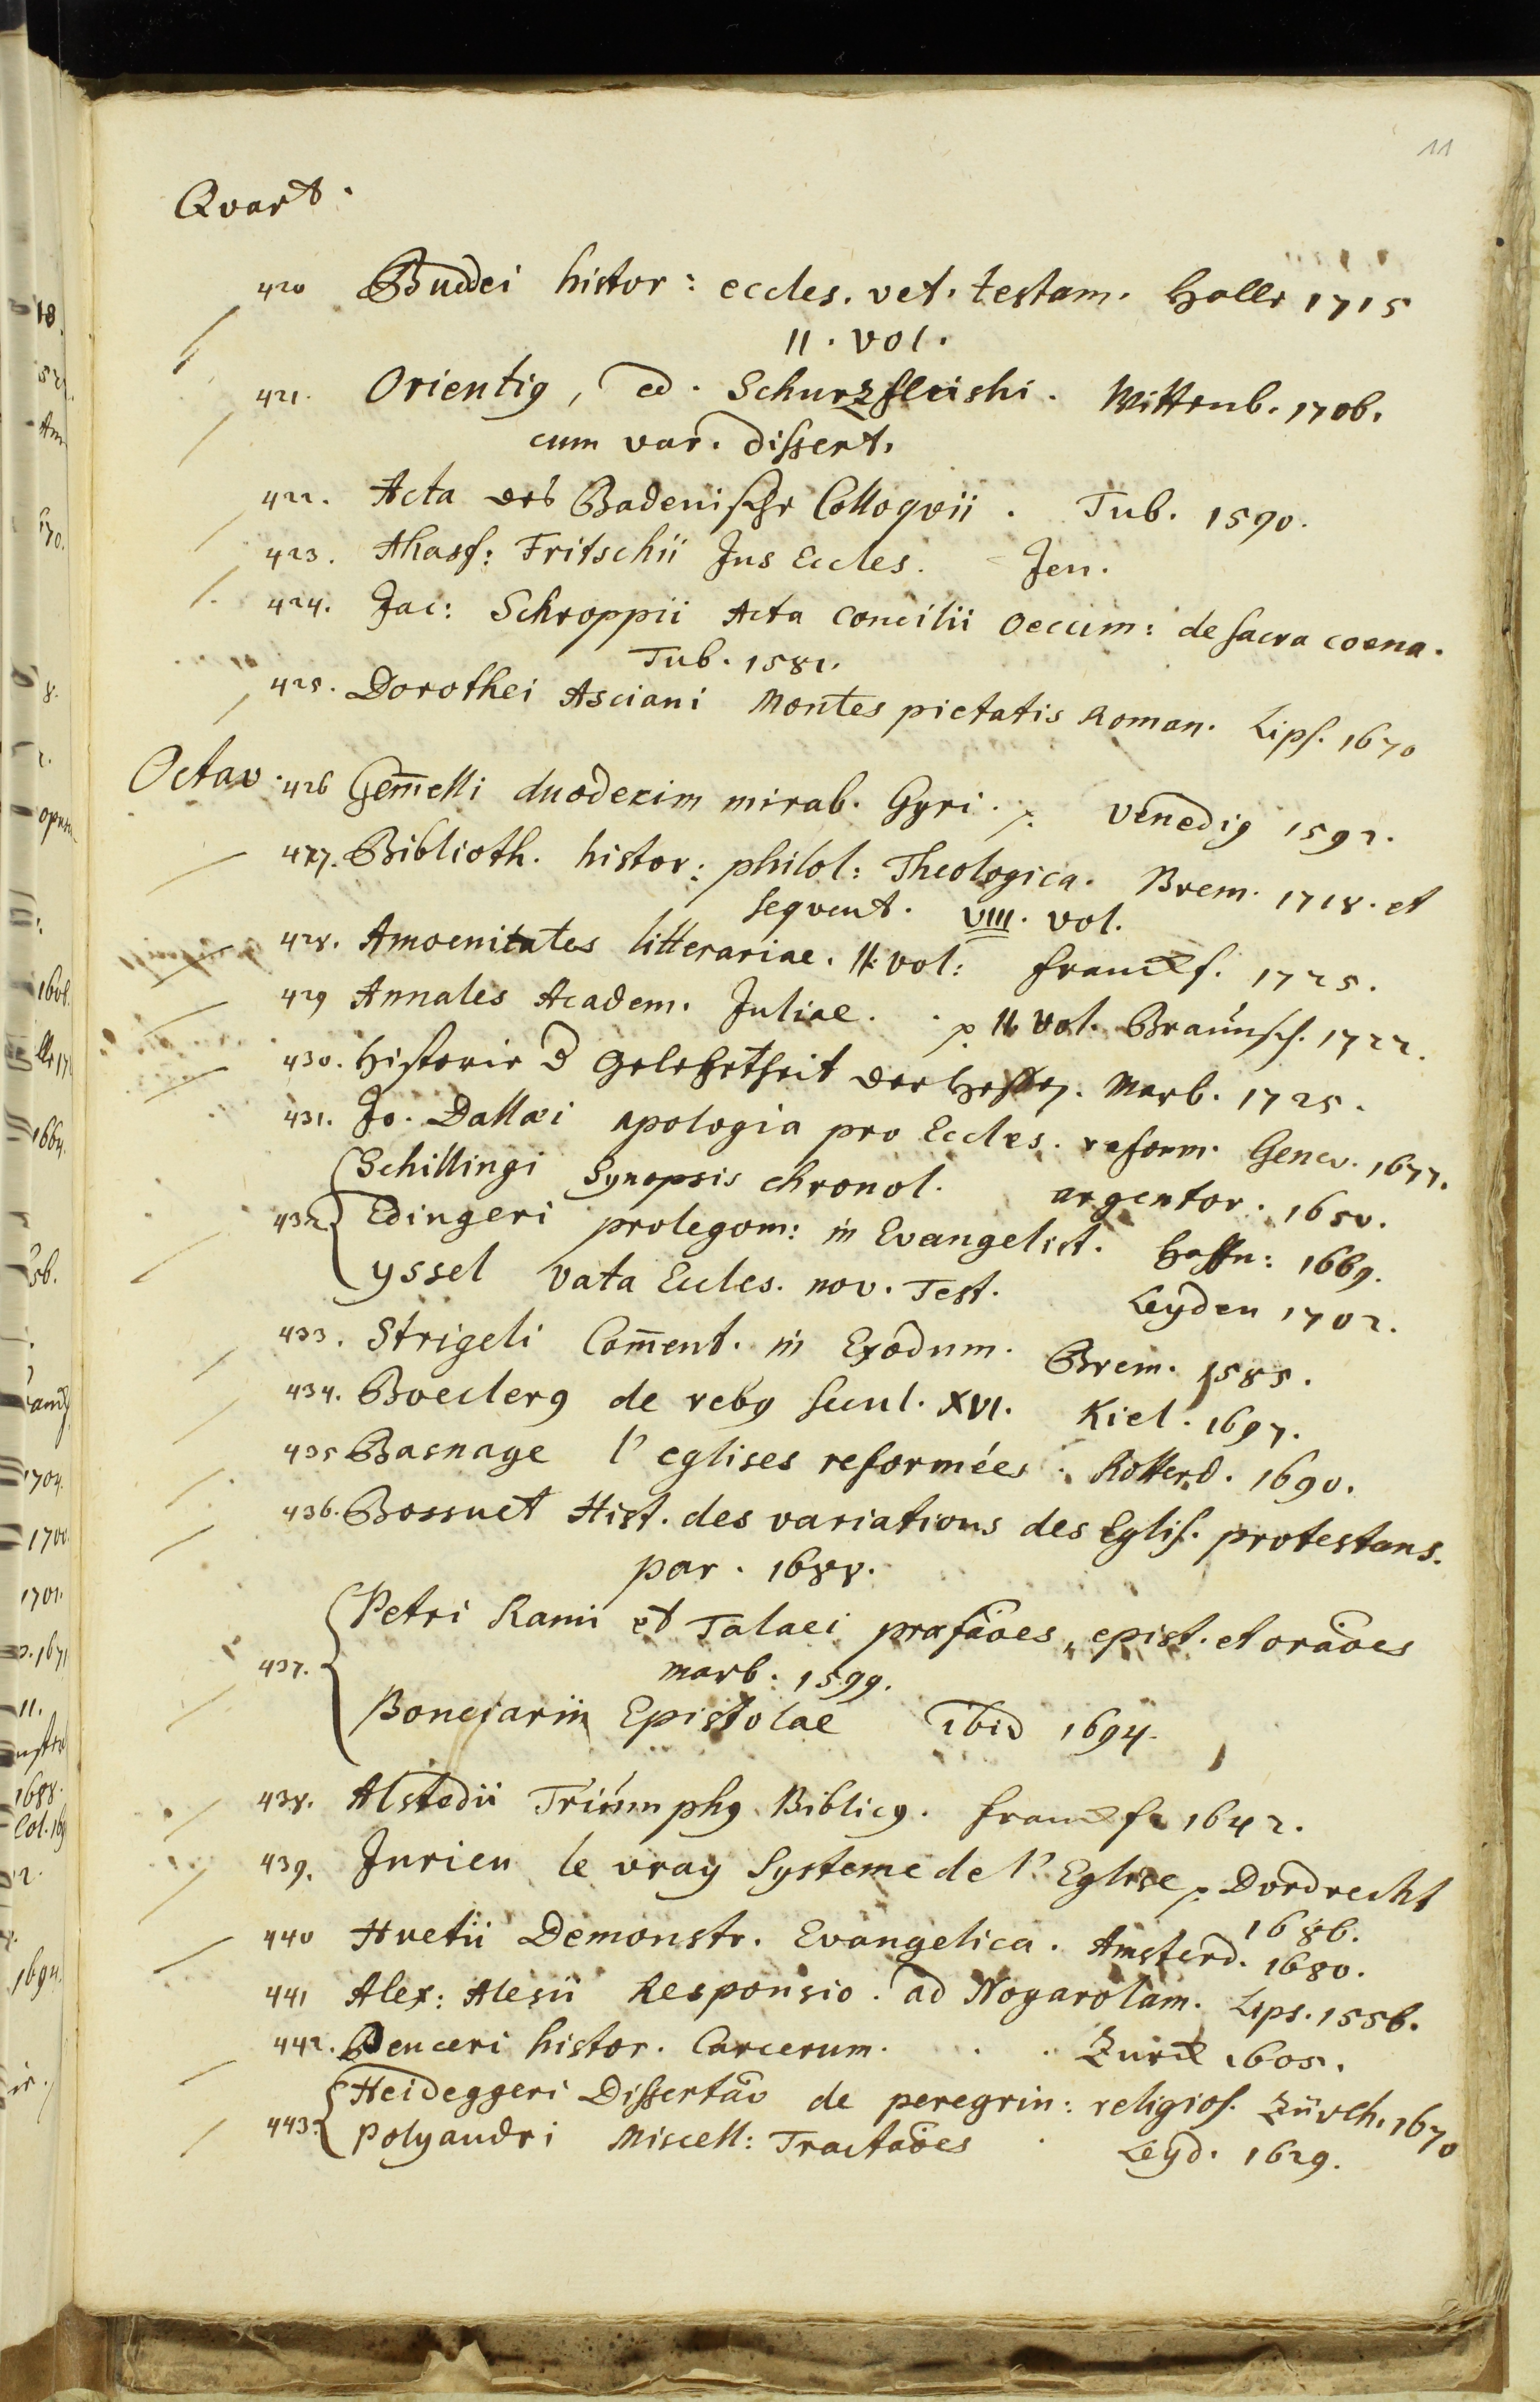 11
Qvart.
420 Buddei histor: eccles. vet. testam. Halle 1715
II. vol.
421. Orientig, ed. Schurzfleishi. Wittenb. 1706.
cum var. dissert.
422. Acta des Badenische Colloqvii. Tub. 1590.
423. Ahasf: Fritschii Jus Eccles. Jen.
424. Jac: Schroppii Acta Concilii Oecum: de sacra coena.
Tub. 1581.
425. Dorothei Asciani Montes pietatis Roman. Lips. 1670
Octav. 426 Gem̄elli duodecim mirab. Gyri. p. Venedig 1592.
427. Biblioth. histor: philol: Theologica. Brem. 1718. et
seqvent. VIII. vol.
428. Amoenitates litterariae. II. vol: Franckf. 1725.
429 Annales Academ. Juliae. p. II. Vol. Braunsch. 1722.
430. Historie d Gelehrtheit der Hessen. Marb. 1725.
431. Jo. Dallaei apologia pro Eccles. reform. Genev. 1677.
Schillingi Synopsis chronol. argentor. 1650.
432 Edingeri prolegom: in Evangelist. Haffn: 1669.
yssel vata Eccles. nov. Test. Leyden 1702.
433. Strigeli Com̄ent. in Exodum. Brem. 1585.
434. Boeclerg de rebg secul. XVI. Kiel. 1697.
435 Basnage l'eglises reformées. Rotterd. 1690.
436. Bossuet Hist. des variations des Eglis. protestans.
par. 1688.
Petri Rami et Talaei praefāoes, epist. et orāoes
437. marb: 1599.
Bonciarii Epistolae ibid 1694.
438. Alstedii Triumphg Biblicg. Franckf. 1642.
439. Jurieu le vray Systeme de l'Eglise p. Dordrecht
1686.
440 Huetii Demonstr. Evangelica. Amsterd. 1680.
441 Alex: Alesii Responsio. ad Nogarolam. Lips. 1556.
442. histor. Carcerum. Zürch 1605.
Heideggeri Dissertāo de peregrin: religios. Zürch. 1670
443. Polyandri Miscell: Tractāoes Leyd. 1629.